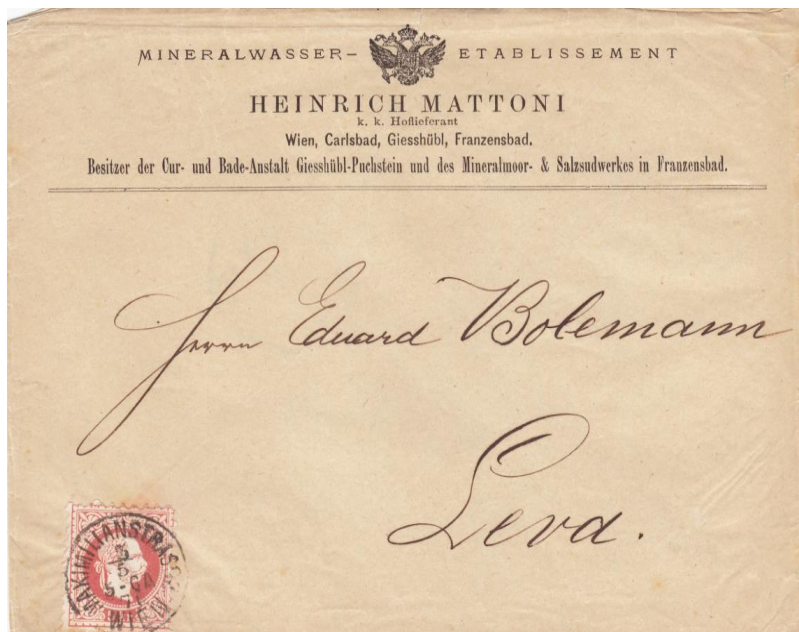 MINERALWASSER- ETABLISSEMENT
HEINRICH MATTONI
k. k. Hoflieferant
Wien, Carlsbad, Giesshübl, Franzensbad.
Besitzer der Cur- und Bade-Anstalt Giesshübl-Puchstein und des Mineralmoor- & Salzsudwerkes in Franzensbad.
Herrn Eduard Bolemann
Leva.
MAXIMILIANSTRASSE
5
WIEN